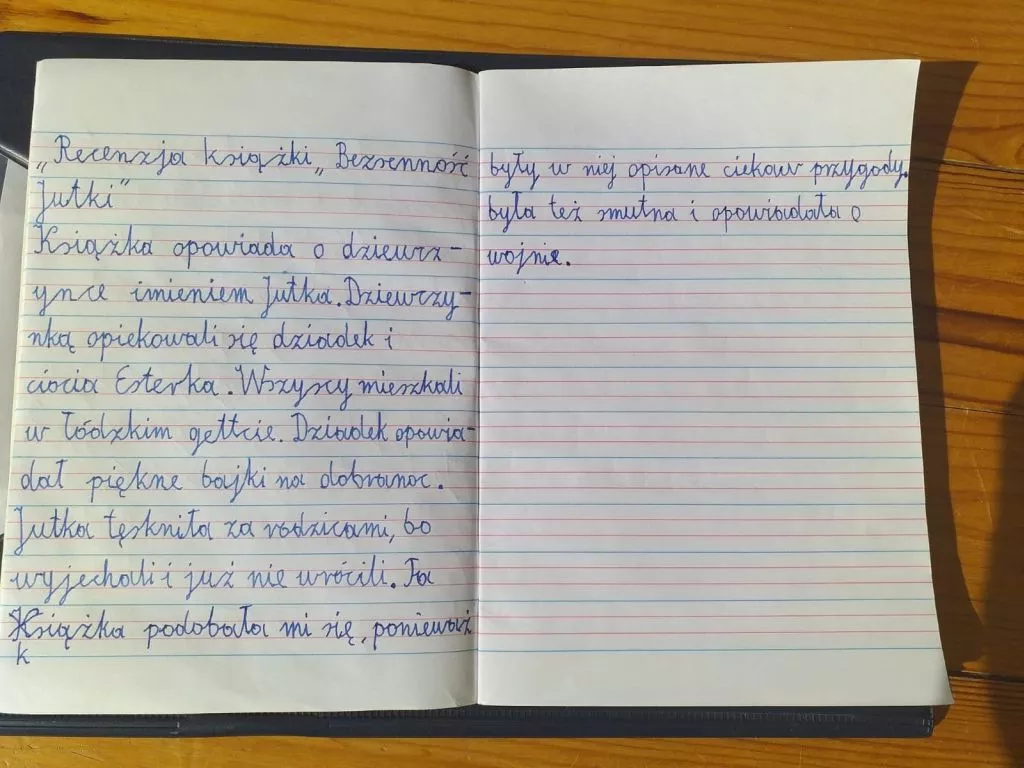 „Recenzja książki „Bezsenność
Jutki”
Książka opowiada o dziewcz-
ynce imieniem Jutka. Dziewczy-
nką opiekowali się dziadek i
ciocia Esterka. Wszyscy mieszkali
w łódzkim gettcie. Dziadek opowia-
dał piękne bajki na dobranoc.
Jutka tęskniła za rodzicami, bo
wyjechali i już nie wrócili. Ta
Książka podobała mi się, ponieważ
k
były w niej opisane ciekaw przygody.
była też smutna i opowiadała o
wojnie.